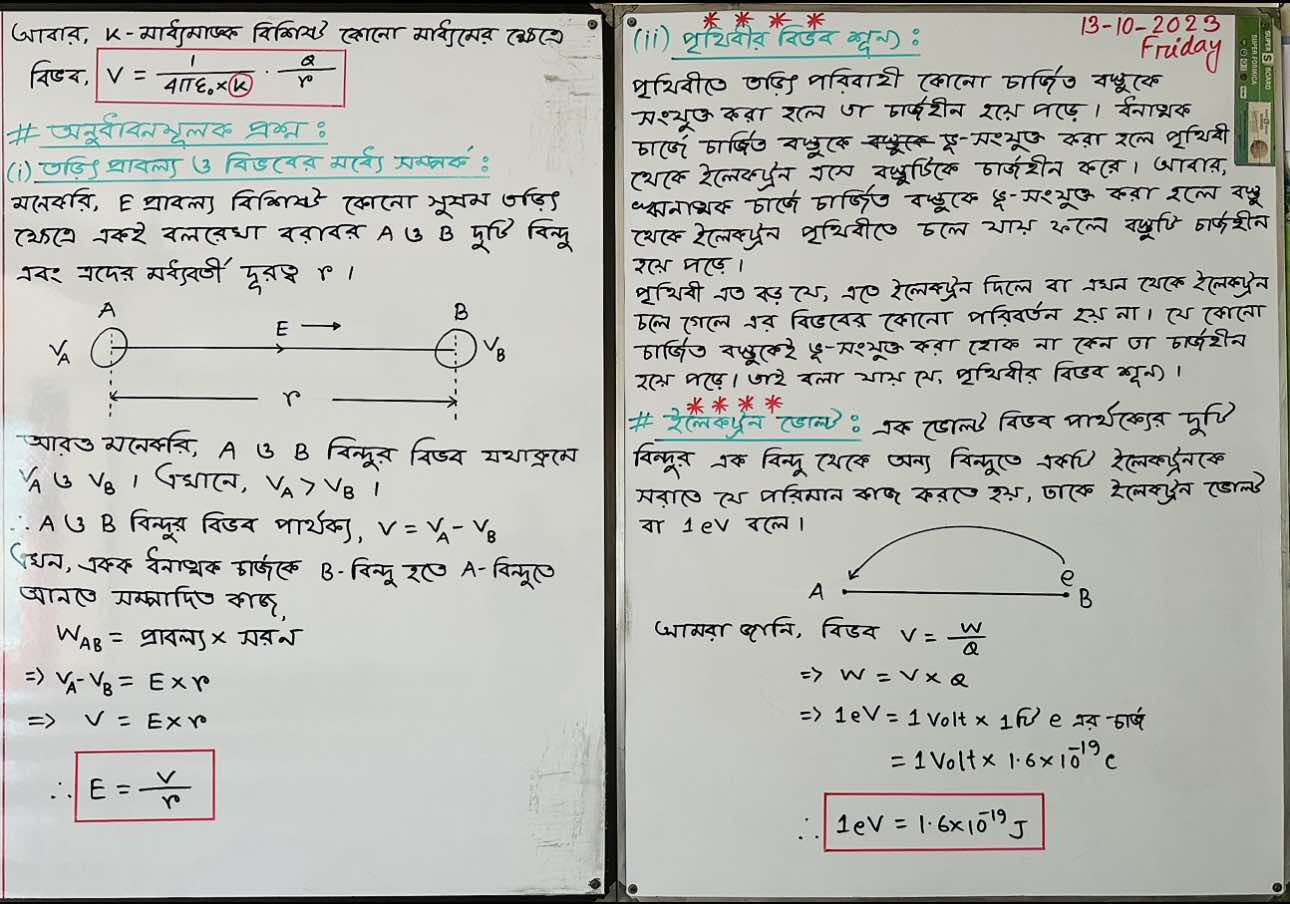 আবার, K-মাধ্যমাঙ্ক বিশিষ্ট কোনো মাধ্যমের ক্ষেত্রে
বিভব, V = 1/4πε₀×K · Q/r
# অনুধাবনমূলক প্রশ্ন :
(i) তড়িৎ প্রাবল্য ও বিভবের মধ্যে সম্পর্ক :
মনেকরি, E প্রাবল্য বিশিষ্ট কোনো সুষম তড়িৎ
ক্ষেত্রে একই বলরেখা বরাবর A ও B দুটি বিন্দু
এবং এদের মধ্যবর্তী দূরত্ব r ।
A B
E →
V_A V_B
r
আরও মনেকরি, A ও B বিন্দুর বিভব যথাক্রমে
V_A ও V_B । এখানে, V_A > V_B ।
∴ A ও B বিন্দুর বিভব পার্থক্য, V = V_A - V_B
এখন, একক ধনাত্মক চার্জকে B-বিন্দু হতে A-বিন্দুতে
আনতে সম্পাদিত কাজ,
W_AB = প্রাবল্য × সরন
=> V_A - V_B = E × r
=> V = E × r
∴ E = V/r
13-10-2023
Friday
* * * *
(ii) পৃথিবীর বিভব শূন্য :
পৃথিবীতে তড়িৎ পরিবাহী কোনো চার্জিত বস্তুকে
সংযুক্ত করা হলে তা চার্জহীন হয়ে পড়ে । ধনাত্মক
চার্জে চার্জিত বস্তুকে বস্তুকে ভূ-সংযুক্ত করা হলে পৃথিবী
থেকে ইলেকট্রন এসে বস্তুটিকে চার্জহীন করে । আবার,
ঋনাত্মক চার্জে চার্জিত বস্তুকে ভূ-সংযুক্ত করা হলে বস্তু
থেকে ইলেকট্রন পৃথিবীতে চলে যায় ফলে বস্তুটি চার্জহীন
হয়ে পড়ে ।
পৃথিবী এত বড় যে, এতে ইলেকট্রন দিলে বা এখন থেকে ইলেকট্রন
চলে গেলে এর বিভবের কোনো পরিবর্তন হয় না । যে কোনো
চার্জিত বস্তুকেই ভূ-সংযুক্ত করা হোক না কেন তা চার্জহীন
হয়ে পড়ে । তাই বলা যায় যে, পৃথিবীর বিভব শূন্য ।
* * * *
# ইলেকট্রন ভোল্ট : এক ভোল্ট বিভব পার্থক্যের দুটি
বিন্দুর এক বিন্দু থেকে অন্য বিন্দুতে একটি ইলেকট্রনকে
সরাতে যে পরিমান কাজ করতে হয়, তাকে ইলেকট্রন ভোল্ট
বা 1eV বলে ।
e
A B
আমরা জানি, বিভব V = W/Q
=> W = V × Q
=> 1eV = 1 Volt × 1 টি e এর চার্জ
= 1 Volt × 1.6×10⁻¹⁹ C
∴ 1eV = 1.6×10⁻¹⁹ J